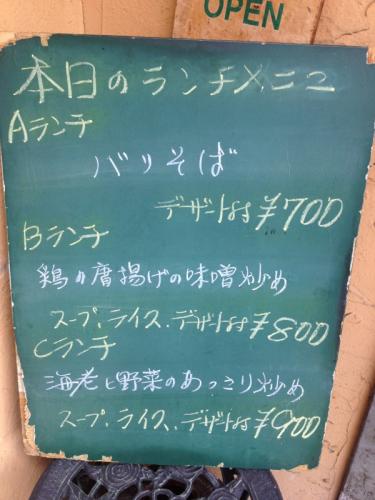 OPEN
本日のランチメニュー
Aランチ
バリそば
デザート付 ¥700
Bランチ
鶏の唐揚げの味噌炒め
スープ、ライス、デザート付 ¥800
Cランチ
海老と野菜のあっさり炒め
スープ、ライス、デザート付 ¥900